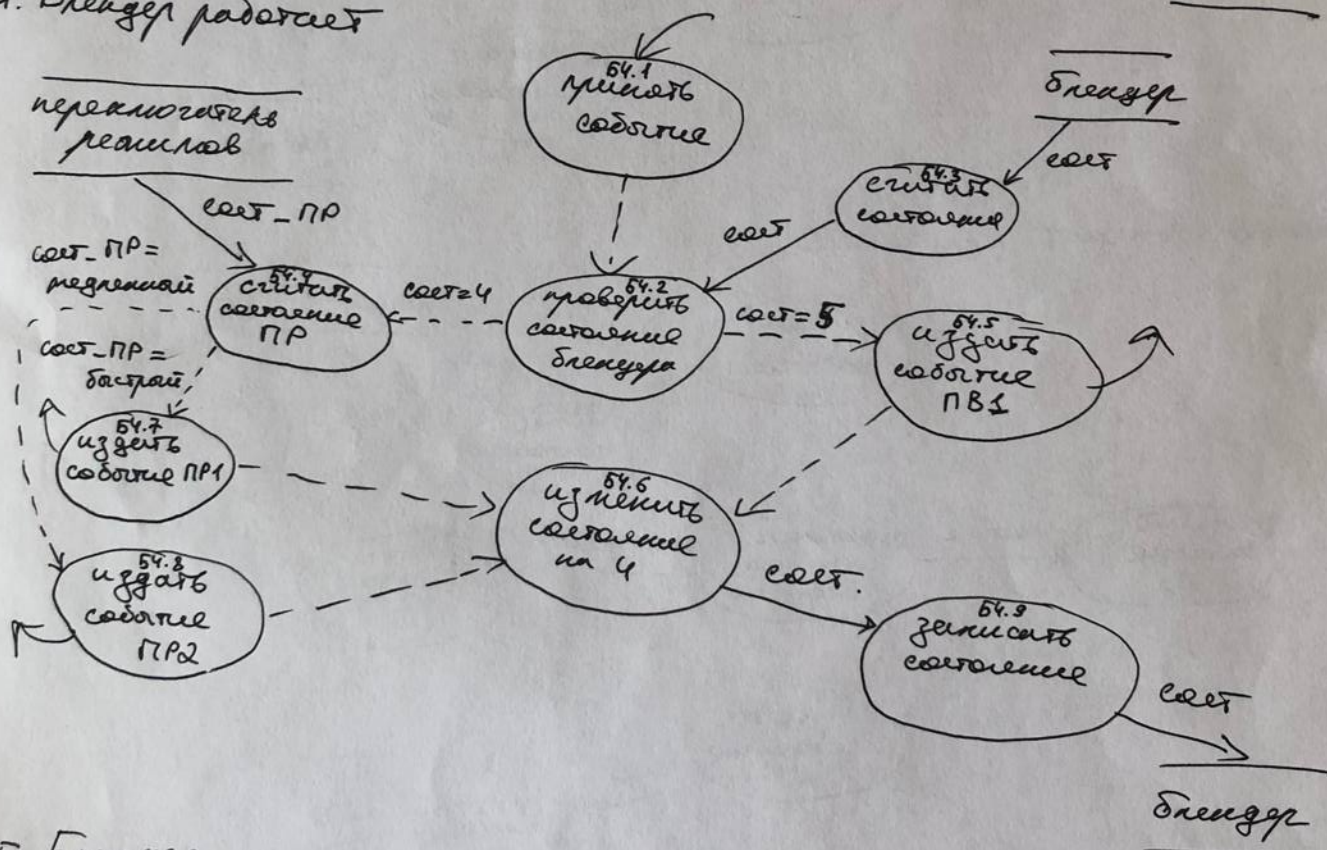 4. Блендер работает
переключатель
режимов
сост_ПР
Б4.1
принять
событие
блендер
сост
Б4.3
считать
состояние
сост
сост_ПР =
медленный
Б4.4
считать
состояние
ПР
сост=4
Б4.2
проверить
состояние
блендера
сост=5
Б4.5
издать
событие
ПВ1
сост_ПР =
быстрый
Б4.7
издать
событие ПР1
Б4.6
изменить
состояние
на 4
сост.
Б4.8
издать
событие
ПР2
Б4.9
записать
состояние
сост
блендер